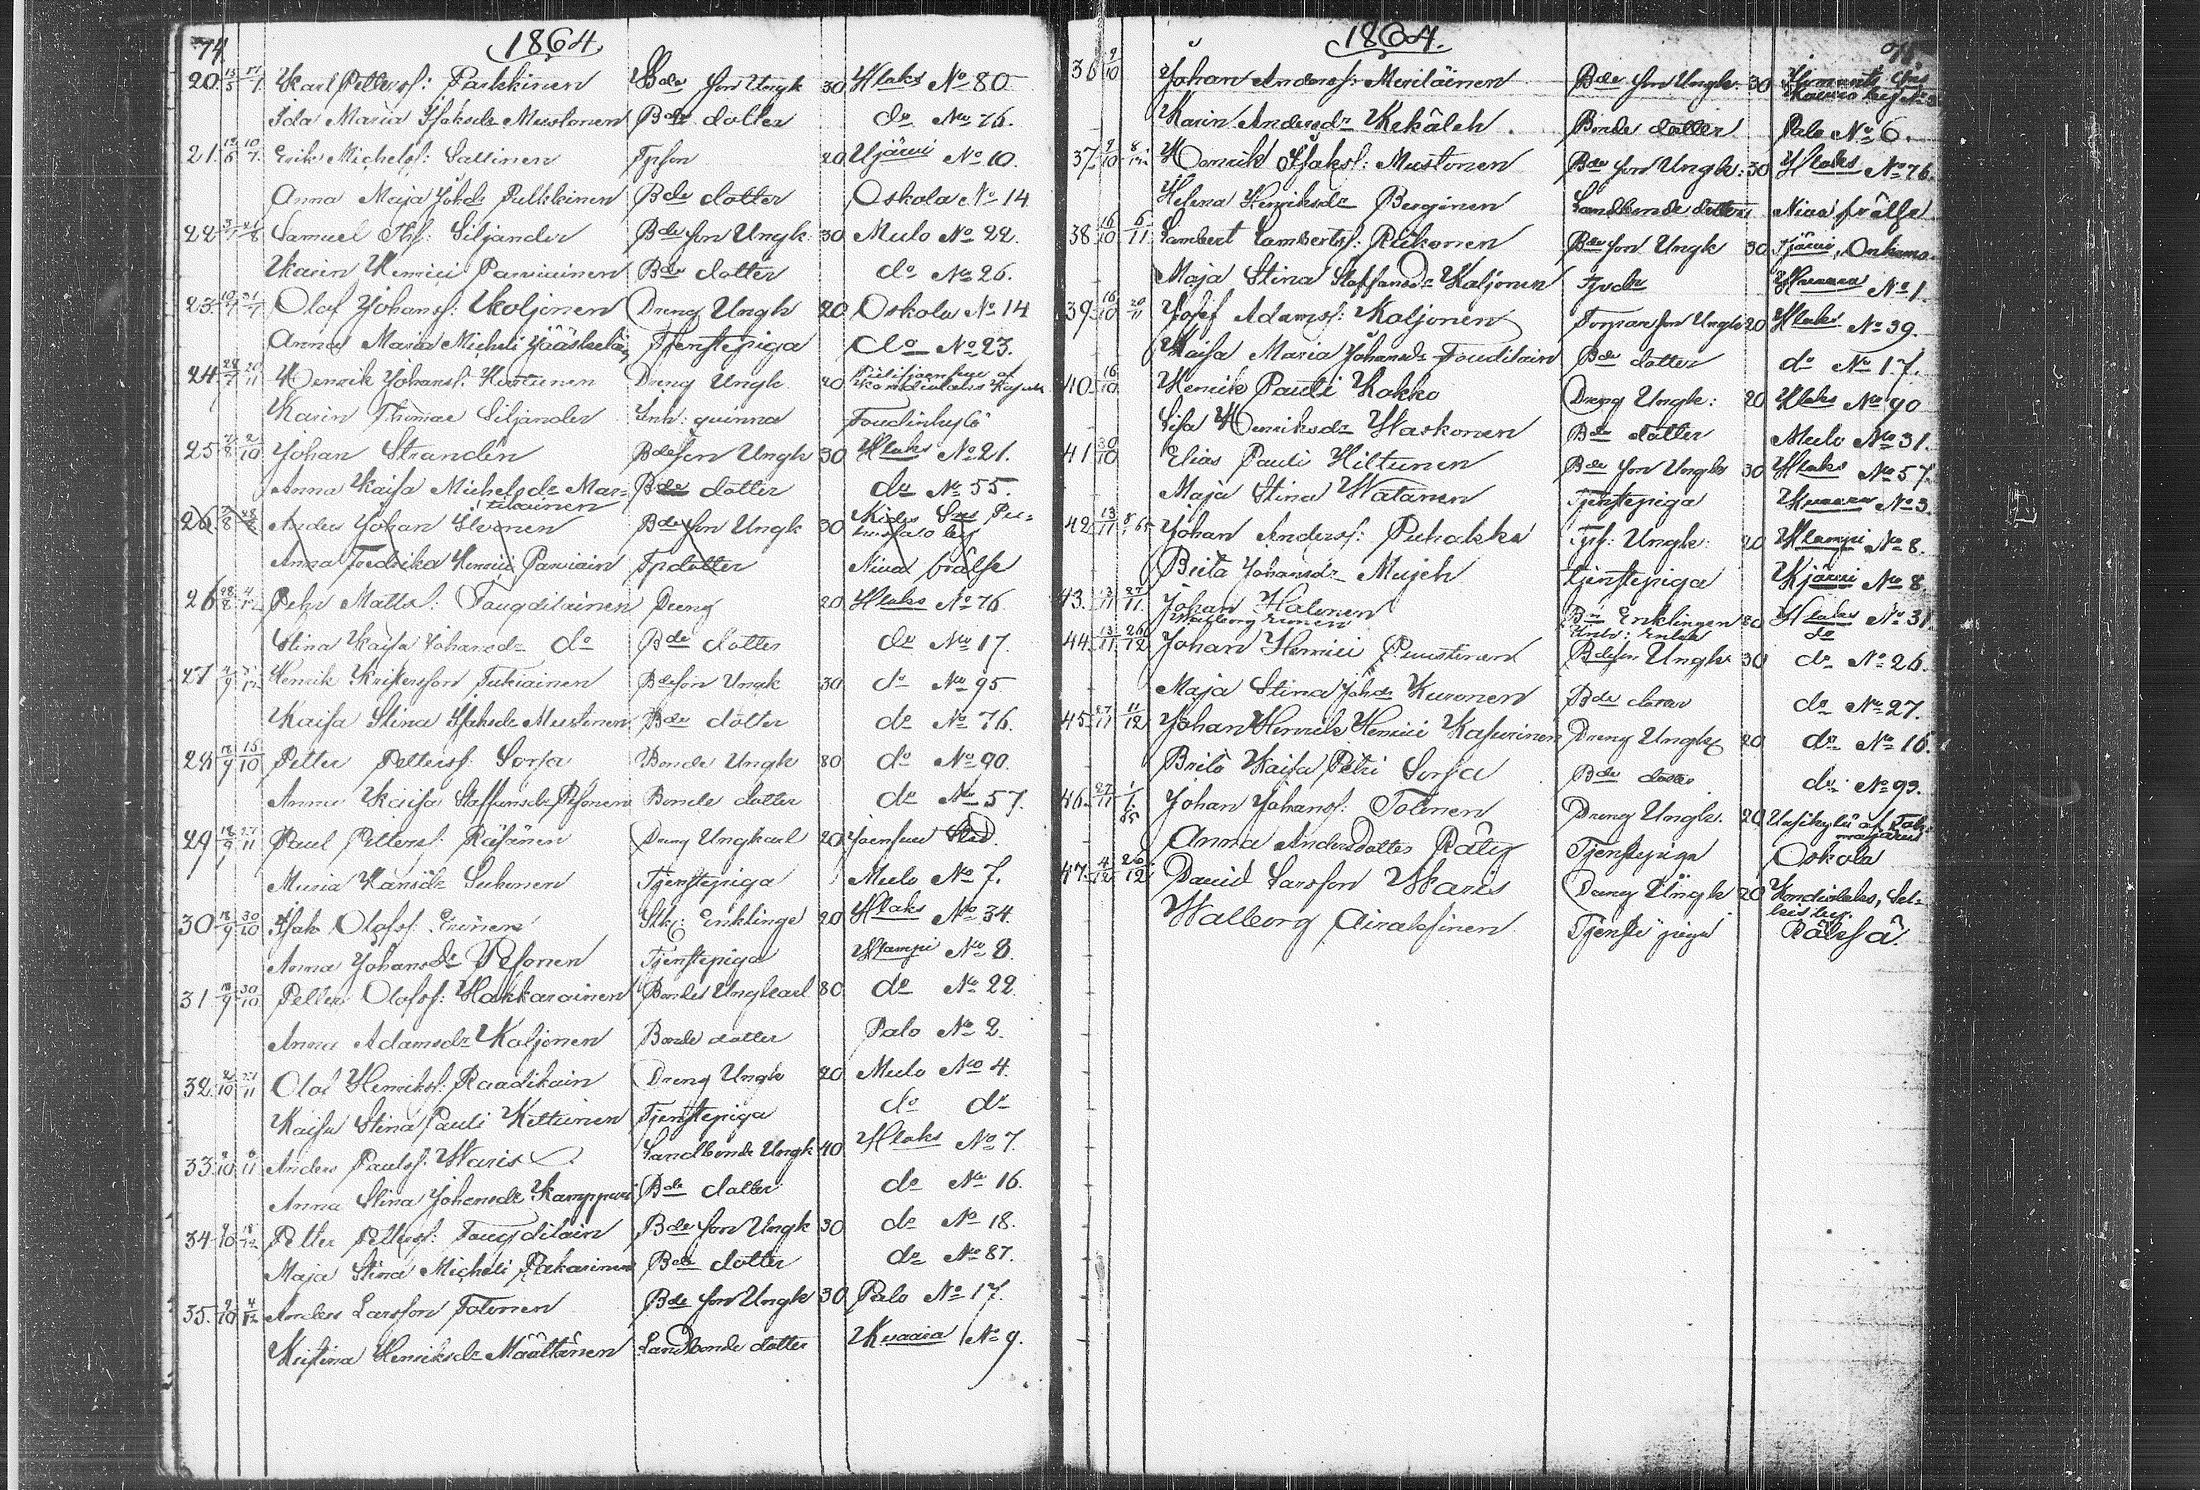 74
1864
20. 13/5 17/7 Karl Petterss: Parkkinen Bde son Ungk 30 Hlaks No 80
Ida Maria Isaksdr Mustonen Bde dotter do No 76.
21. 12/6 10/7 Erik Michelss: Sallinen Tpson 20 Ujärvi No 10.
Anna Maja Johdr Pulkkinen Bde dotter Oskola No 14
22 Samuel Siljander Bde son Ungk 30 Mulo No 22.
Karin Henrici Parviainen Bde dotter do No 26.
23. Olof Johanss: Koljonen Dreng Ungk 20 Oskola No 14
Anna Maria Micheli Jääskeläi Tjenstepiga do No 23.
24 Henrik Johanss: Dreng Ungk 20
Karin Thomae Siljander Inh: qvinna
25 10 Johan Strandén Bdeson Ungk 30 Hlaks No 21.
Anna Kaisa Michelsdr Mar= Bde dotter do No 55.
tikainen
26. Anders Johan Bde son Ungk 30 Kides
Anna Fredrika Henrici Parviain Tpdotter Niva frälse
26 28/8 Pehr Matts: Taugdilainen Dreng 20 Hlaks No 76.
Stina Kaisa Johansdr do Bde dotter do No 17.
27 4/9 Henrik Kristersson Tukiainen Bdeson Ungk 30 do No 95
Kaisa Stina Isaksdr Mustonen Bde dotter do No 76.
28 15/10 Petter Petterss: Sorsa Bonde Ungk 80 do No 90.
Anna Kaisa Staffansdr Pesonen Bonde dotter do No 57.
29 18/9 27/11 Paul Petterss: Räsänen Dreng Ungkarl 20 Joensuu Stad.
Maria Hansdr Tjenstepiga Mulo No 7.
30 18/9 30/10 Isak Olofss: Eronen Enklinge 20 Hlaks No 34.
Anna Johansdr Pesonen Tjenstepiga Hlampi No 8.
31 18/9 30/10 Petter Olofss: Hakkarainen Bondes Ungkarl 80 do No 22.
Anna Adamsdr Koljonen Bonde dotter Palo No 2.
32. 2/10 27/11 Olof Henrikss: Raadikain Dreng Ungk 20 Mulo No 4.
Kaisa Stina Pauli Kettunen Tjenstepiga do do
33. 9/10 6/11 Anders Paulss: Waris Landbonde Ungk 40 Hlaks No 7.
Anna Stina Johansdr Kamppuri Bde dotter do No 16.
34 9/10 18/12 Petter Petterss: Taugdilain Bde son Ungk 30 do No 18.
Maja Stina Micheli Pakarinen Bde dotter do No 87.
35. 9/10 4/12 Anders Larsson Tolonen Bde son Ungk 30 Palo No 17.
Kristina Henriksdr Määttänen Landbonde dotter Kvaara No 9.
1864.
36 9/10 Johan Anderss: Meriläinen Bde son Ungk. 30
Karin Andersdr Kekäleh. Bonde dotter Palo No 6.
37 9/10 Henrik Isakss: Mustonen Bde son Ungk: 30 Hlaks No 76.
Helena Henriksdr Berginen Landbonde dotter Niva frälse
38 16/10 6/11 Lambert Lambertss: Räkonen Bde son Ungk 30
Maja Stina Staffansdr Koljonen Kvaara No 1.
39 16/10 20/11 Josef Adamss: Koljonen Torparson Ungk 20 Hlaks No 39.
Kaisa Maria Johansdr Bde dotter do No 17.
40 16/10 Henrik Pauli Kokko Dreng Ungk: 20 Hlaks No 90
Lisa Henriksdr Haskonen Bde dotter Mulo No 31.
41 30/10 Elias Pauli Hiltunen Bde son Ungk 30 Hlaks No 57.
Maja Stina Watanen Tjenstepiga Kvaara No 3.
42 13/11 Johan Anderss: Puhakka Tps: Ungk. 20 Hlampi No 8.
Brita Johansdr Mujeh tjenstepiga Kjärvi No 8
43. 27/11 Johan Halonen Enklingen 80 Hlaks No 31.
Walborg do
44 13/11 26/12 Johan Henrici Puustinen Bdeson Ungk 30 do No 26.
Maja Stina Johdr Kuronen Bde dotter do No 27.
45. 27/11 11/12 Johan Henrik Henrici Kasurinen Dreng Ungk 20 do No 16.
Brita Kaisa Petri Sorsa Bde dotter do No 93.
46. 27/11 1/1 65 Johan Johanss: Tolonen Dreng Ungk. 20
Anna Andersdotter Räty Tjenstepiga Oskola
47. 4/12 26/12 David Larsson Waris Dreng Ungk 20
Walborg Airaksinen Tjenste piga